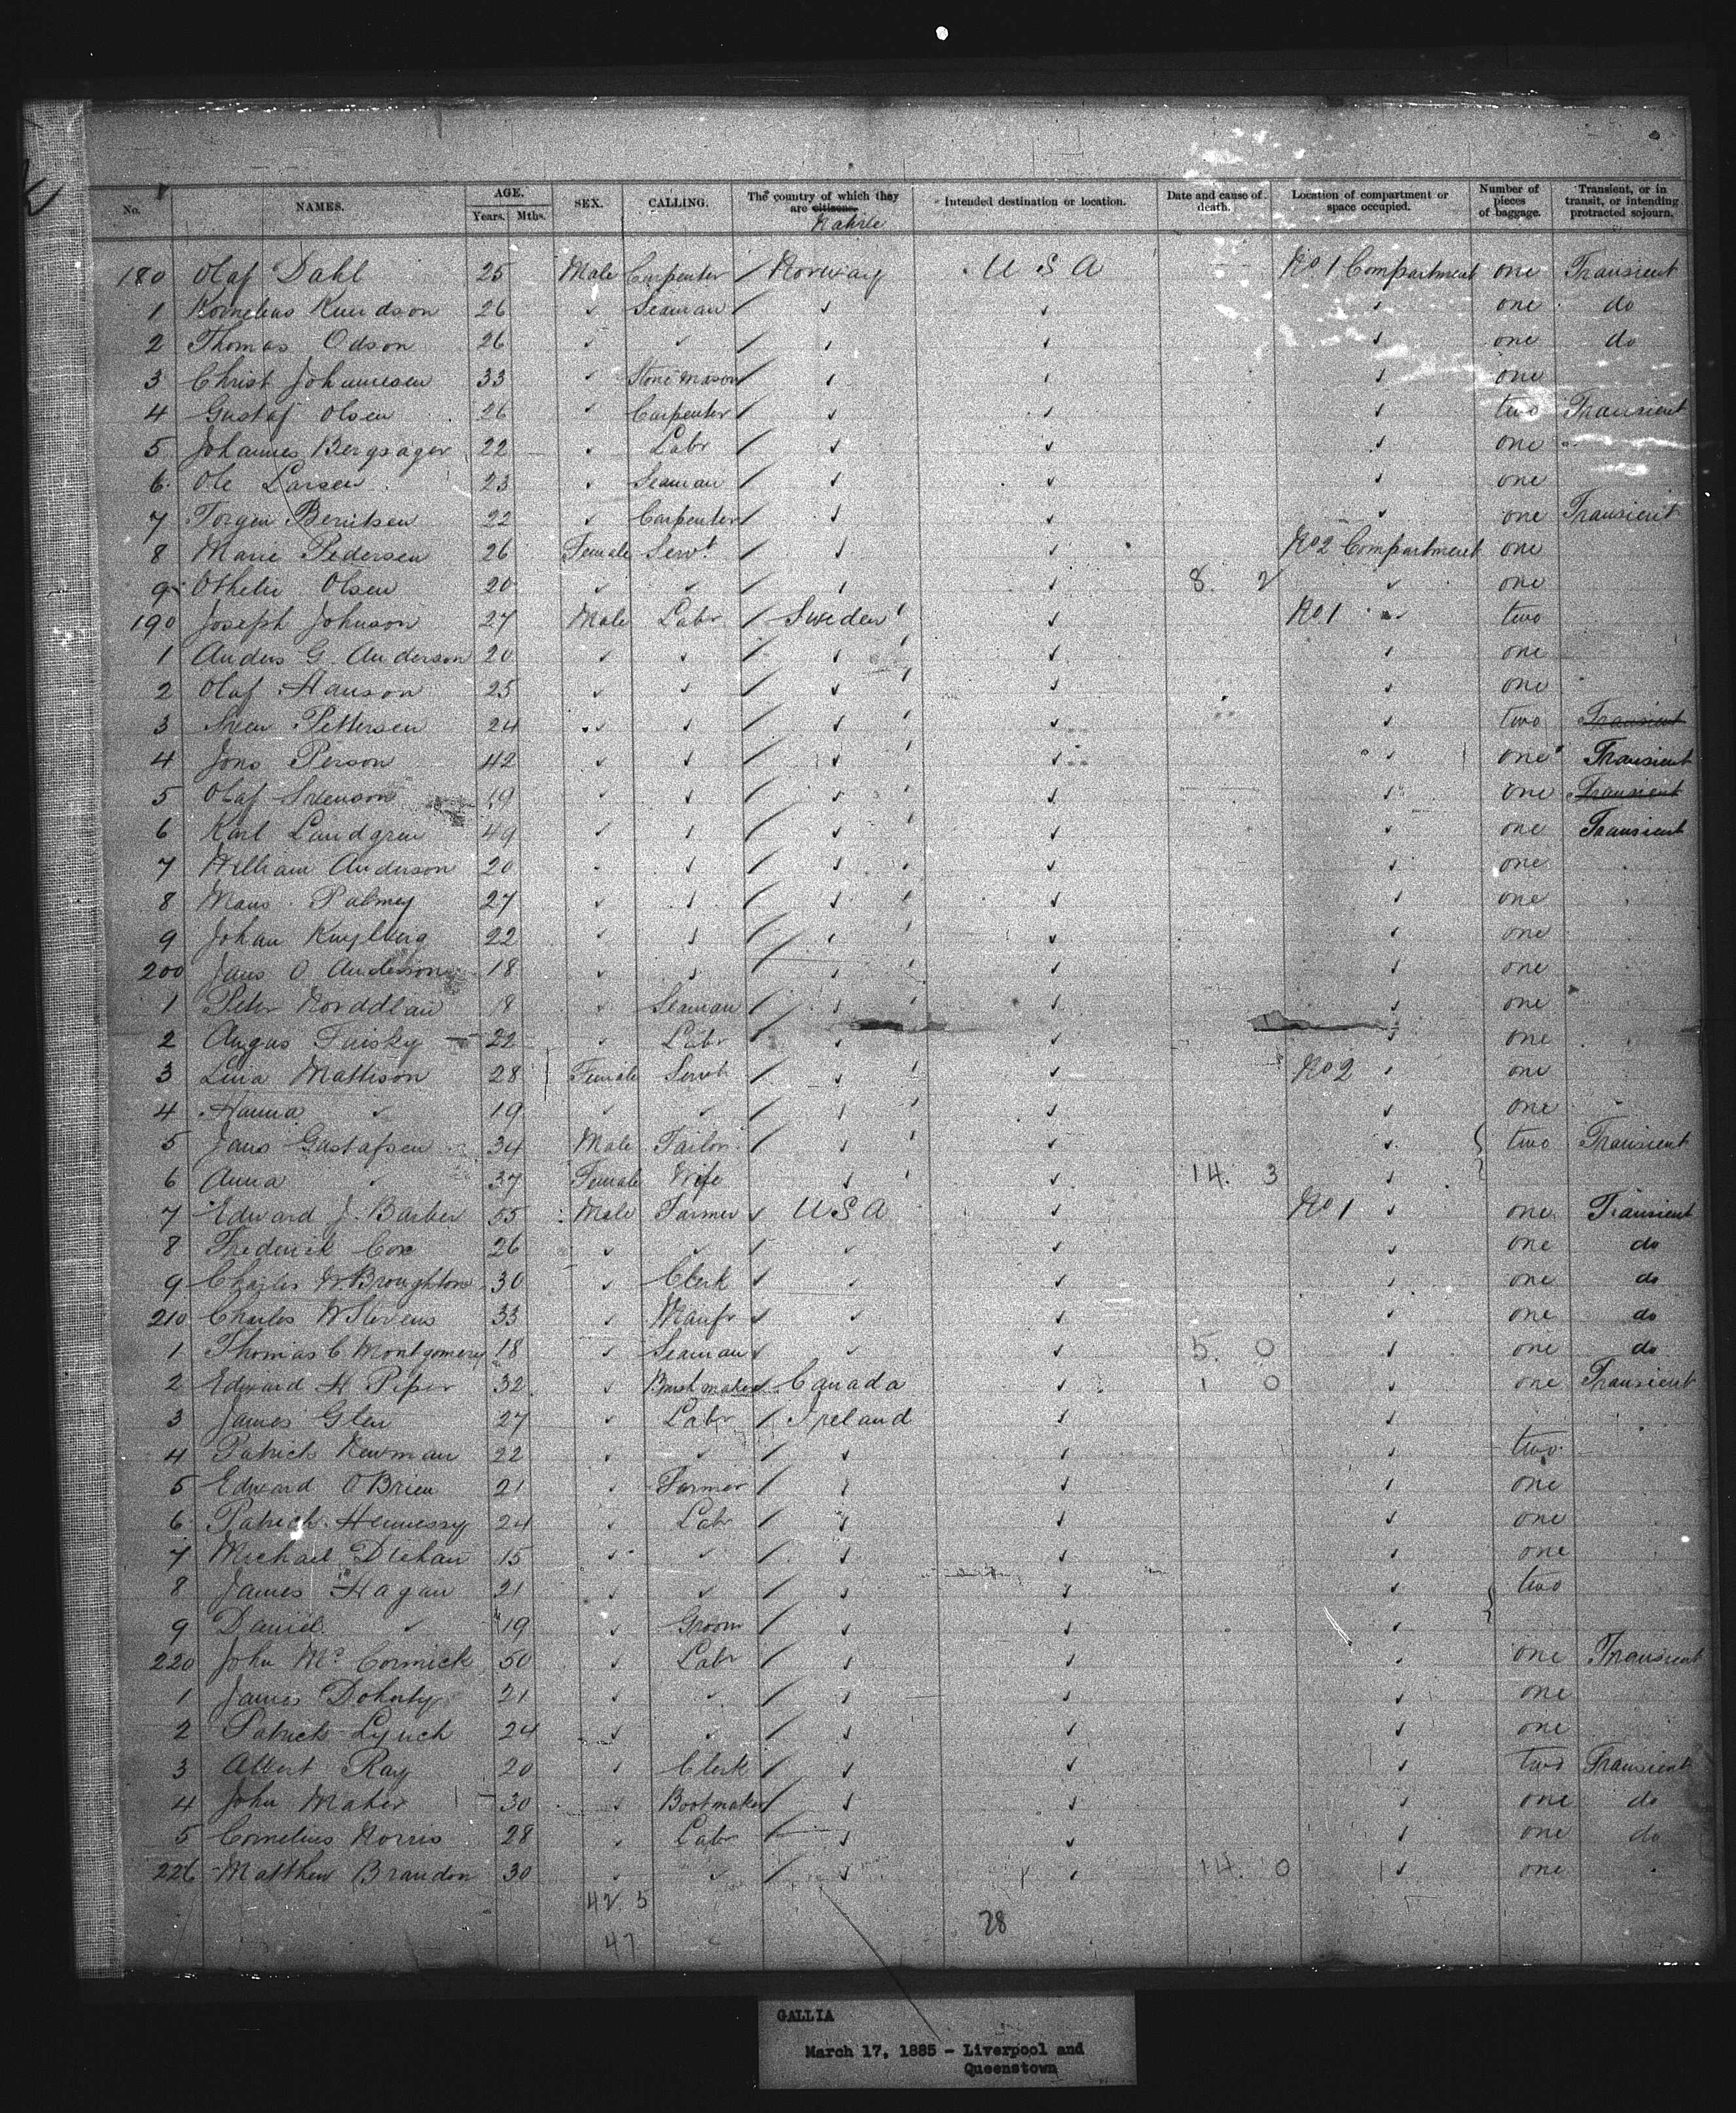 No. NAMES. AGE. Years. Mths. SEX. CALLING. The country of which they are citizens. Native Intended destination or location. Date and cause of death. Location of compartment or space occupied. Number of pieces of baggage. Transient, or in transit, or intending protracted sojourn.
180 Olaf Dahl 25 Male Carpenter / Norway U S A No 1 Compartment one Transient
1 Kornelius Knudson 26 ✓ Seaman / ✓ ✓ ✓ one do
2 Thomas Odson 26 ✓ ✓ / ✓ ✓ ✓ one do
3 Christ Johannesen 33 ✓ Stone Mason / ✓ ✓ ✓ one
4 Gustaf Olsen 26 ✓ Carpenter / ✓ ✓ ✓ two Transient
5 Johannes Bergsager 22 ✓ Labr / ✓ ✓ ✓ one
6 Ole Larsen 23 ✓ Seaman / ✓ ✓ ✓ one
7 Torgen Berntsen 22 ✓ Carpenter / ✓ ✓ ✓ one Transient
8 Marie Pedersen 26 Female Servt / ✓ ✓ No 2 Compartment one
9 Olsen 20 ✓ ✓ / ✓ ✓ 8. 2 ✓ one
190 Joseph Johnson 27 Male Labr / Sweden ✓ No 1 ✓ two
1 Anders G Anderson 20 ✓ ✓ / ✓ ✓ ✓ one
2 Olaf Hanson 25 ✓ ✓ / ✓ ✓ ✓ one
3 Sven Pettersen 24 ✓ ✓ / ✓ ✓ ✓ two Transient
4 Jons Person 42 ✓ ✓ / ✓ ✓ ✓ one Transient
5 Olaf Svenson 19 ✓ ✓ / ✓ ✓ ✓ one Transient
6 Karl Landgren 49 ✓ ✓ / ✓ ✓ ✓ one Transient
7 William Anderson 20 ✓ ✓ / ✓ ✓ ✓ one
8 Mans Palmey 27 ✓ ✓ / ✓ ✓ ✓ one
9 Johan 22 ✓ ✓ / ✓ ✓ ✓ one
200 Jans O Anderson 18 ✓ ✓ / ✓ ✓ ✓ one
1 Peter 18 ✓ Seaman / ✓ ✓ ✓ one
2 Angus 22 ✓ Labr / ✓ ✓ ✓ one
3 Lina Mattison 28 Female Servt / ✓ ✓ No 2 ✓ one
4 Hanna ✓ 19 ✓ ✓ / ✓ ✓ ✓ one
5 Jans Gustafsen 34 Male Tailor / ✓ ✓ ✓ two Transient
6 Anna ✓ 37 Female Wife ✓ ✓ 14. 3 ✓
7 Edward J. Barber 55 Male Farmer ✓ U S A ✓ No 1 ✓ one Transient
8 Frederick Cox 26 ✓ ✓ ✓ ✓ ✓ ✓ one do
9 Charles W. Broughton 30 ✓ Clerk ✓ ✓ ✓ ✓ one do
210 Charles W Stevens 33 ✓ Manfr ✓ ✓ ✓ ✓ one do
1 Thomas C Montgomery 18 ✓ Seaman ✓ ✓ ✓ 5. 0 ✓ one do
2 Edward H Piper 32 ✓ Brushmaker ✓ Canada ✓ 1 0 ✓ one Transient
3 James Glen 27 ✓ Labr / Ireland ✓ ✓
4 Patrick Newman 22 ✓ ✓ / ✓ ✓ ✓ two
5 Edward O'Brien 21 ✓ Farmer / ✓ ✓ ✓ one
6 Patrick Hennessy 24 ✓ Labr / ✓ ✓ ✓ one
7 Michael 15 ✓ ✓ / ✓ ✓ ✓ one
8 James Hagan 21 ✓ ✓ / ✓ ✓ ✓ two
9 Daniel ✓ 19 ✓ Groom / ✓ ✓ ✓
220 John Mc Cormick 50 ✓ Labr / ✓ ✓ ✓ one Transient
1 James Doherty 21 ✓ ✓ / ✓ ✓ ✓ one
2 Patrick Lynch 24 ✓ ✓ / ✓ ✓ ✓ one
3 Albert Ray 20 ✓ Clerk / ✓ ✓ ✓ two Transient
4 John Maher 30 ✓ Bootmaker / ✓ ✓ ✓ one do
5 Cornelius Norris 28 ✓ Labr / ✓ ✓ ✓ one do
226 Matthew Brandon 30 ✓ ✓ / ✓ ✓ 14. 0 ✓ one
42. 5
28
47
GALLIA
March 17, 1885 - Liverpool and
Queenstown